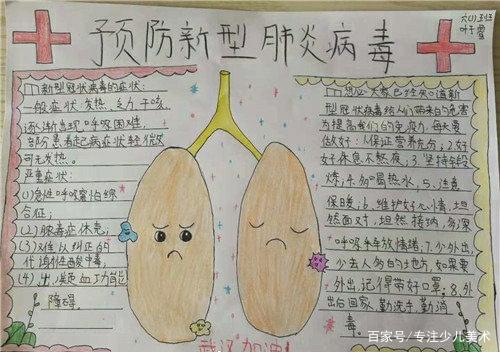 预防新型肺炎病毒
六(1)班
叶子雪
新型冠状病毒的症状:
一般症状:发热、乏力、干咳、
逐渐出现呼吸困难,
部分患者起病症状轻微,
可无发热。
严重症状:
(1)急性呼吸窘怕综
合征;
(2)脓毒症休克;
(3)难以纠正的
代谢性酸中毒;
(4)出、凝血功能
障碍
新型冠状病毒给人们带来的危害
为提高我们的免疫力,每天要
做好:1、保证营养充分;2、好
好休息不熬夜,3、坚持锻
炼;4、多喝热水;5、注意
保暖;6、维护好心情,坦
然面对,坦然接纳,多深
呼吸来释放情绪;7、少外出,
少去人多的地方,如果要
外出,记得带好口罩。8、外
出后回家,勤洗手,勤消
毒。
武汉加油!
百家号/专注少儿美术